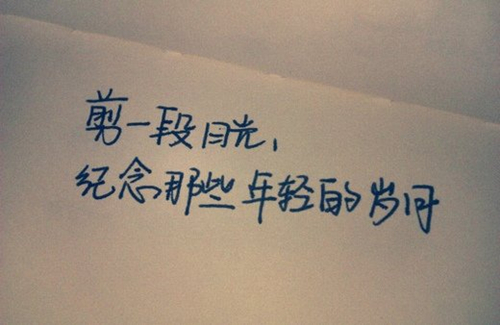 剪一段月光,
纪念那些年轻的岁月